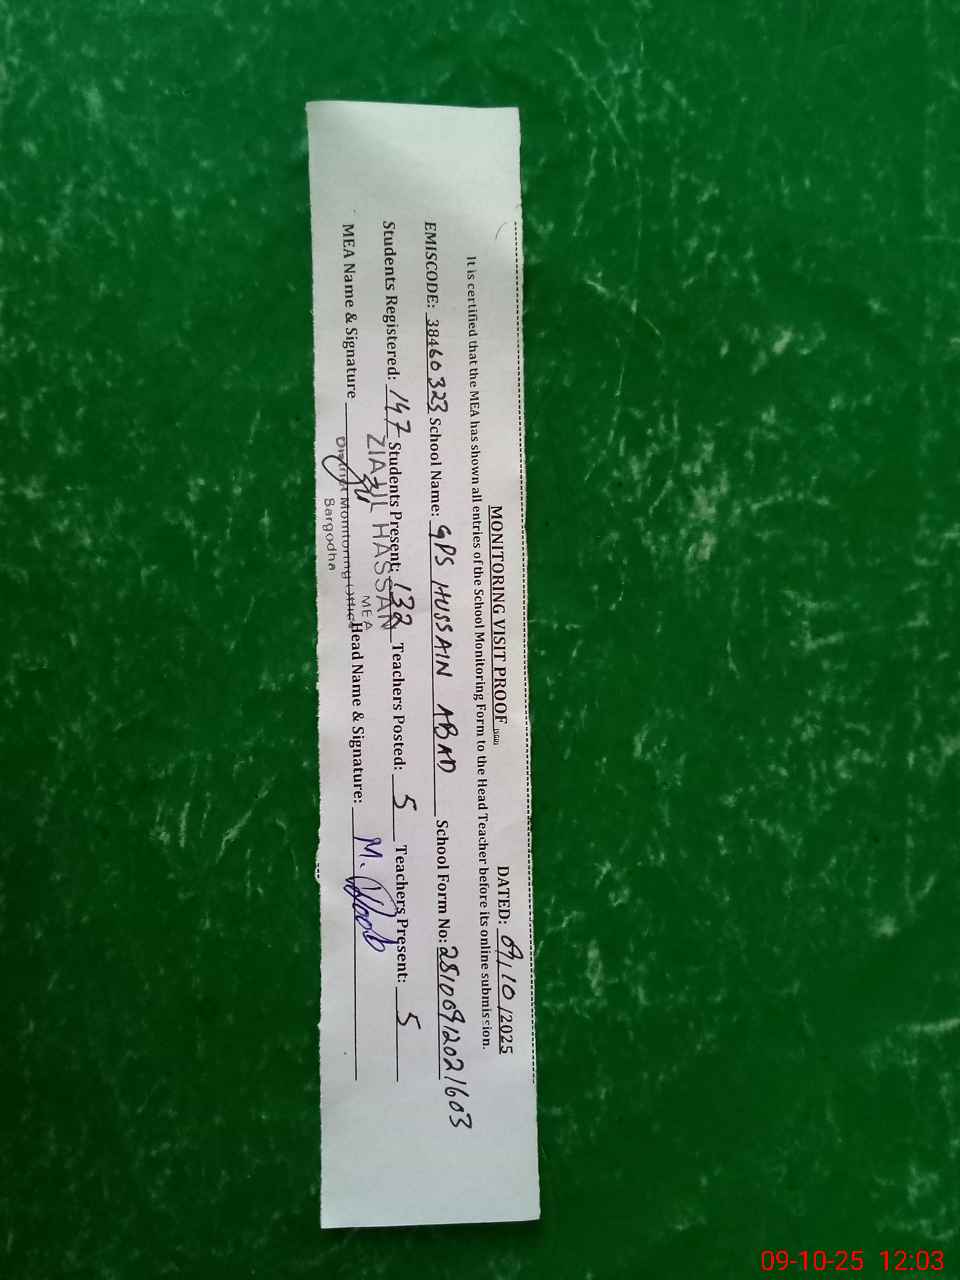 MONITORING VISIT PROOF DATED: 09/10/2025
It is certified that the MEA has shown all entries of the School Monitoring Form to the Head Teacher before its online submission.
EMISCODE: 38460323 School Name: GPS HUSSAIN ABAD School Form No: 25100912021603
Students Registered: 147 Students Present: 132 Teachers Posted: 5 Teachers Present: 5
ZIA UL HASSAN
MEA
MEA Name & Signature Head Name & Signature: M.
District Monitoring Office
Sargodha
09-10-25 12:03